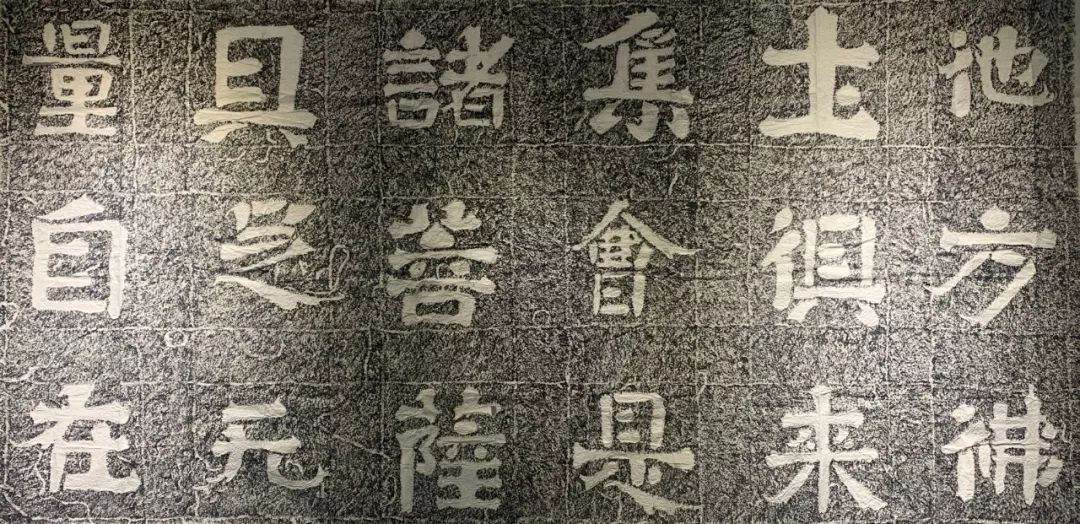 他方佛
土俱来
集會是
諸菩薩
具足无
量自在